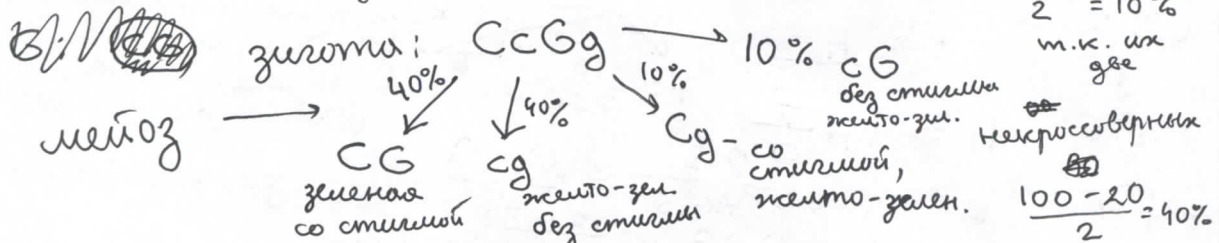 зигота: CcGg → 10% cG
без стигмы
желто-зел.
мейоз →
40% CG
зеленая
со стигмой
40% cg
желто-зел.
без стигмы
10% Cg - со
стигмой,
желто-зелен.
2 = 10%
т.к. их
две
некроссоверных
100 - 20
2 = 40%